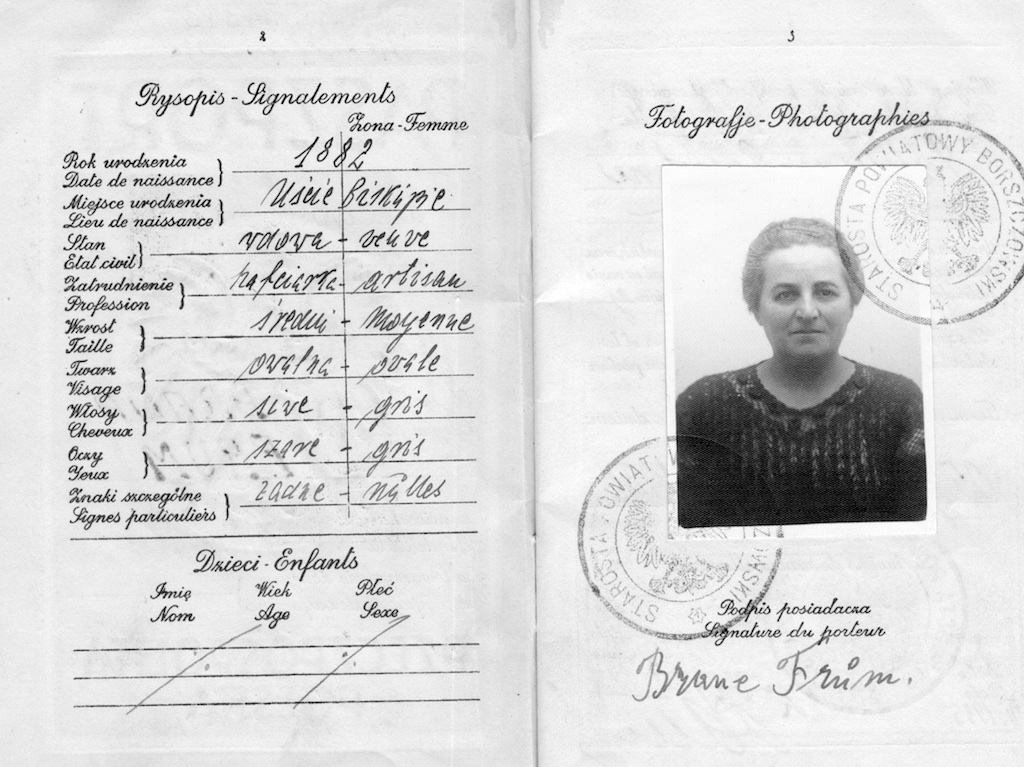 2
Rysopis - Signalements
Żona - Femme
Rok urodzenia
Date de naissance } 1882
Miejsce urodzenia
Lieu de naissance } Uście biskupie
Stan
Etat civil } wdowa - veuve
Zatrudnienie
Profession } hafciarka - artisan
Wzrost
Taille } średni - moyenne
Twarz
Visage } owalna - ovale
Włosy
Cheveux } siwe - gris
Oczy
Yeux } szare - gris
Znaki szczególne
Signes particuliers } żadne - nulles
Dzieci - Enfants
Imię Wiek Płeć
Nom Age Sexe
3
Fotografje - Photographies
STAROSTA POWIATOWY BORSZCZOWSKI
STAROSTA POWIATOWY
Podpis posiadacza
Signature du porteur
Frŭm.